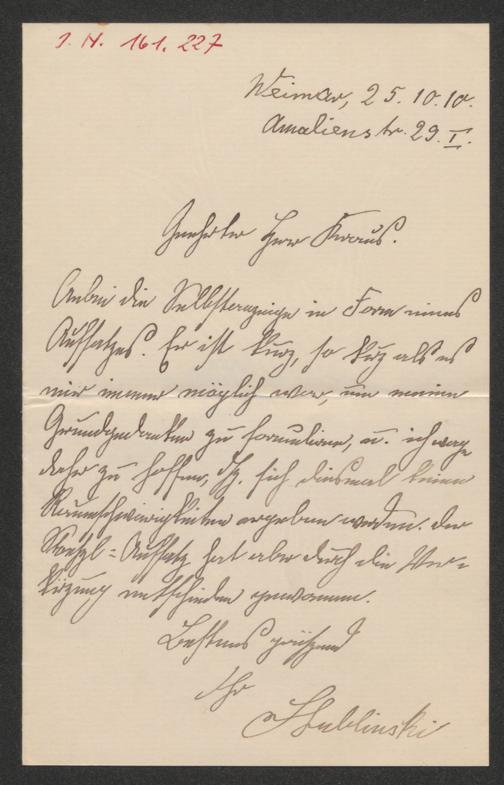 I. N. 161.227
Weimar, 25.10.10.
Amalienstr. 29. I.
Geehrter Herr Kraus.
Anbei die Selbstanzeige in Form eines
Aufsatzes. Er ist kurz, so kurz als es
mir immer möglich war, um meinen
Grundgedanken zu formulieren, u. ich wage
daher zu hoffen, dß. sich diesmal keine
Raumschwierigkeiten ergeben werden. Der
Aufsatz hat aber durch die Ver=
kürzung entschieden gewonnen.
Bestens grüßend
Ihr
SLublinski